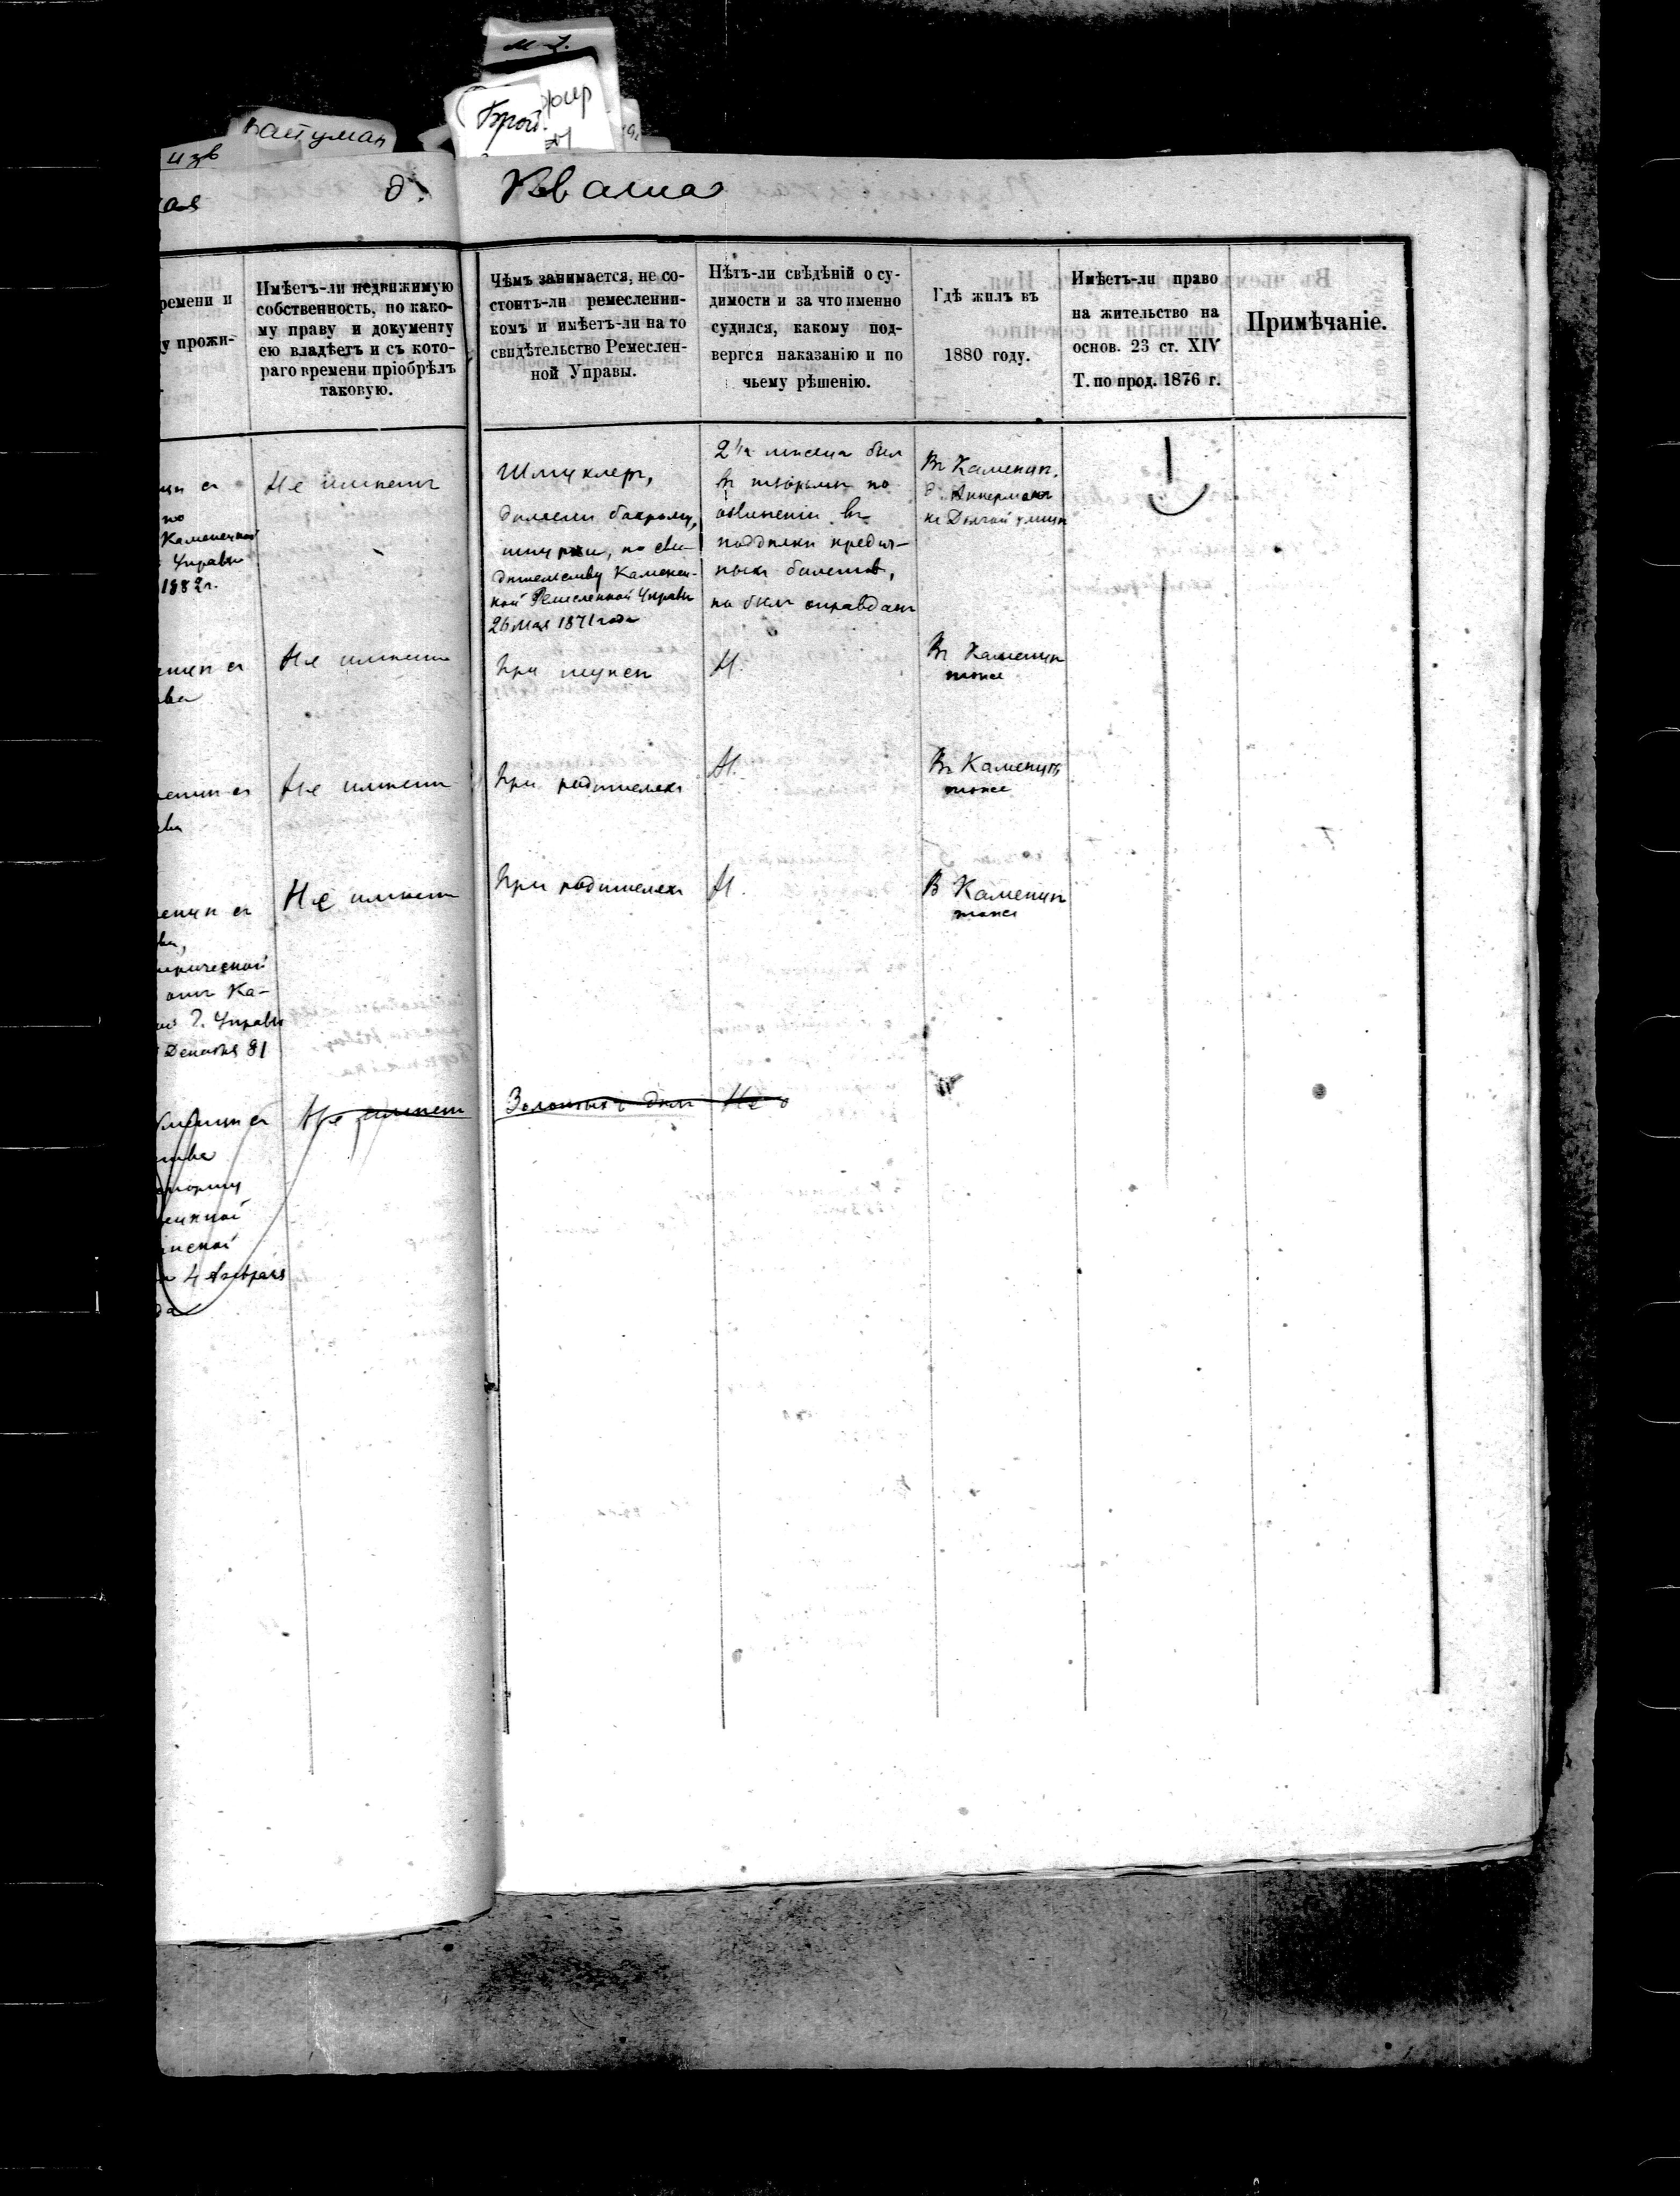 м-ц.
Брой.
жир
Вайтуман
изв
ая
д.
Кваша
ремени и
у прожи-
Имѣетъ-ли недвижимую
собственность, по како-
му праву и документу
ею владѣетъ и съ кото-
раго времени пріобрѣлъ
таковую.
Чѣмъ занимается, не со-
стоитъ-ли ремесленни-
комъ и имѣетъ-ли на то
свидѣтельство Ремеслен-
ной Управы.
Нѣтъ-ли свѣдѣній о су-
димости и за что именно
судился, какому под-
вергся наказанію и по
чьему рѣшенію.
Гдѣ жилъ въ
1880 году.
Имѣетъ-ли право
на жительство на
основ. 23 ст. XIV
Т. по прод. 1876 г.
Примѣчаніе.
по
Каменецкой
Управы
1882 г.
Не имѣетъ
Шмуклеръ,
дѣлаетъ бахрому,
шнурки, по сви-
дѣтельству Каменец-
кой Ремесленной Управы
26 Мая 1871 года
2½ мѣсяца былъ
въ тюрьмѣ по
обвиненію въ
поддѣлкѣ кредит-
ныхъ билетовъ,
но былъ оправданъ
Въ Каменцѣ
д. Аккермана
на Долгой улицѣ
Не имѣетъ
При мужѣ
Н.
Въ Каменцѣ
тоже
Не имѣетъ
При родителяхъ
Н.
Въ Каменцѣ
тоже
Не имѣетъ
При родителяхъ
Н.
В Каменцѣ
тоже
отъ Ка-
Управы
Декабря 81
Не имѣетъ
Золотыхъ дѣлъ
Не
4 Февраля
да